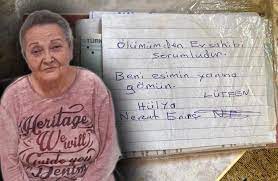 TÜRK
Ölümümden Ev sahibi
sorumludur.
Beni eşimin yanına
gömün.
LÜTFEN
Hülya
Heritage
We will
Guide you